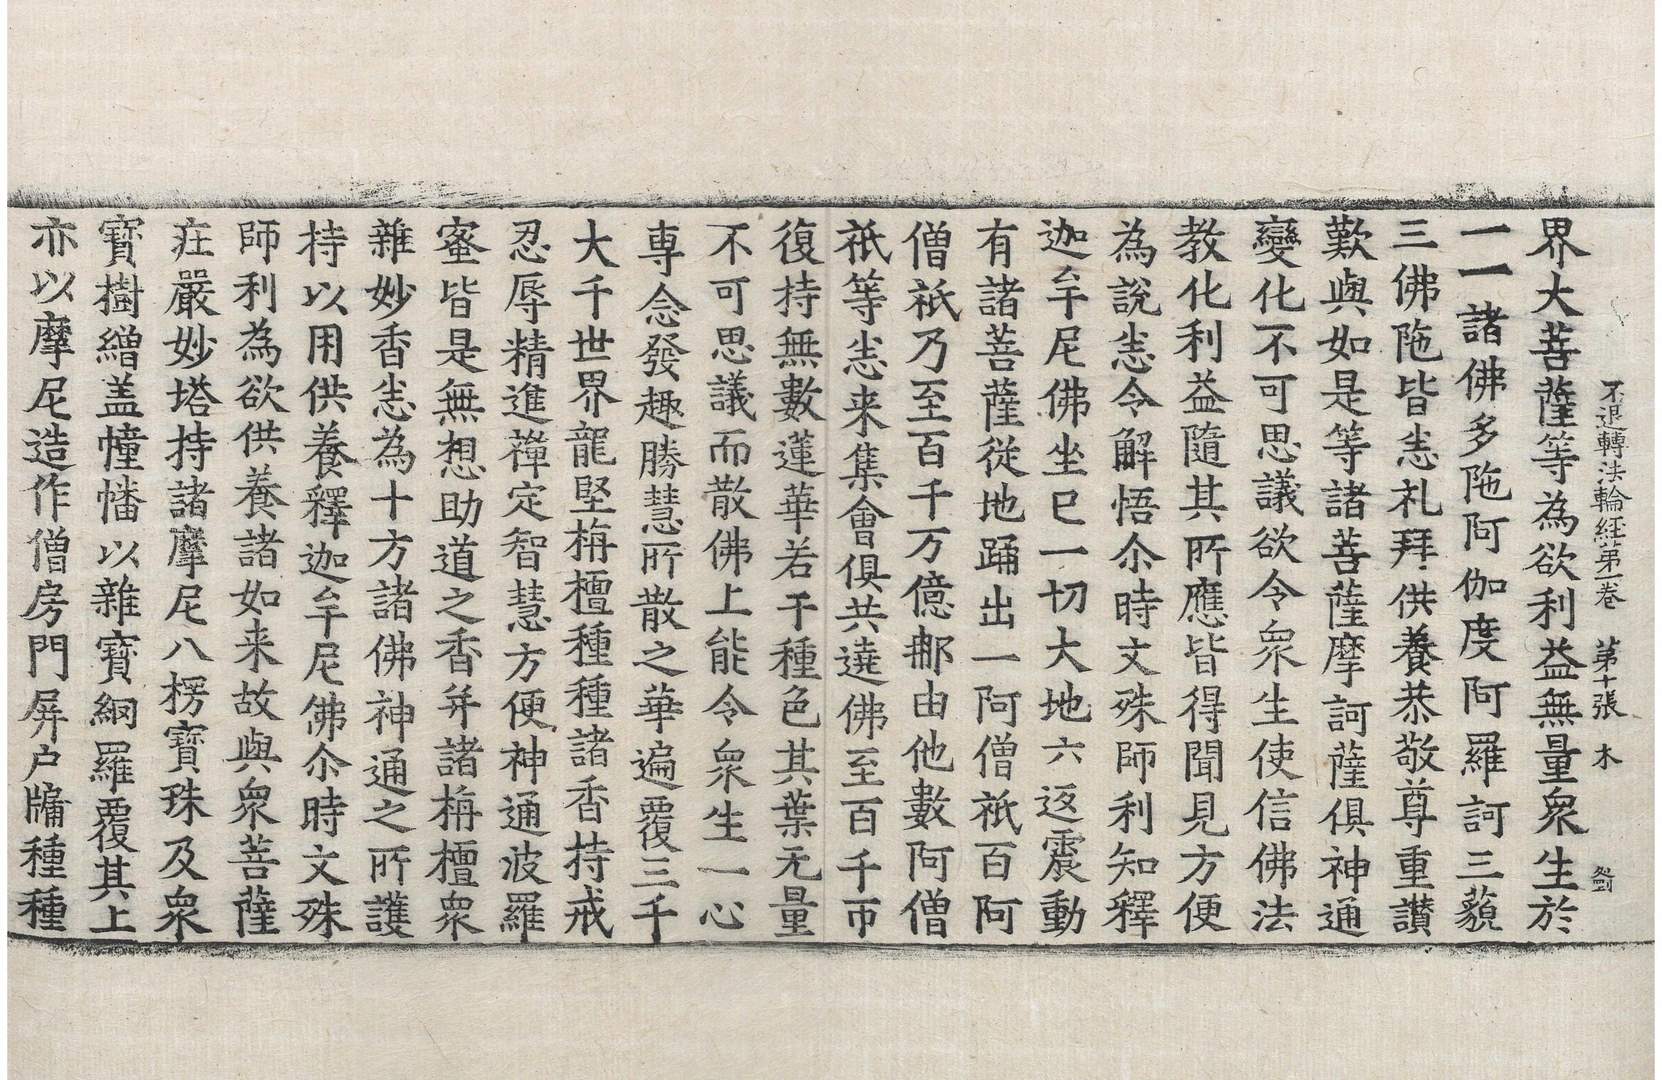 不退轉法輪經第一卷　第十張　木
界大菩薩等為欲利益無量衆生於
一一諸佛多陁阿伽度阿羅訶三藐
三佛陁皆悉礼拜供養恭敬尊重讃
歎與如是等諸菩薩摩訶薩俱神通
變化不可思議欲令衆生使信佛法
教化利益隨其所應皆得聞見方便
為說悉令解悟尒時文殊師利知釋
迦牟尼佛坐已一切大地六返震動
有諸菩薩從地踊出一阿僧祇百阿
僧祇乃至百千万億那由他數阿僧
祇等悉来集會俱共遶佛至百千帀
復持無數蓮華若干種色其葉无量
不可思議而散佛上能令衆生一心
専念發趣勝慧所散之華遍覆三千
大千世界龍堅栴檀種種諸香持戒
忍辱精進禪定智慧方便神通波羅
蜜皆是無想助道之香并諸栴檀衆
雜妙香悉為十方諸佛神通之所護
持以用供養釋迦牟尼佛尒時文殊
師利為欲供養諸如来故與衆菩薩
莊嚴妙塔持諸摩尼八楞寶珠及衆
寶樹繒盖幢幡以雜寶網羅覆其上
亦以摩尼造作僧房門屏户牖種種